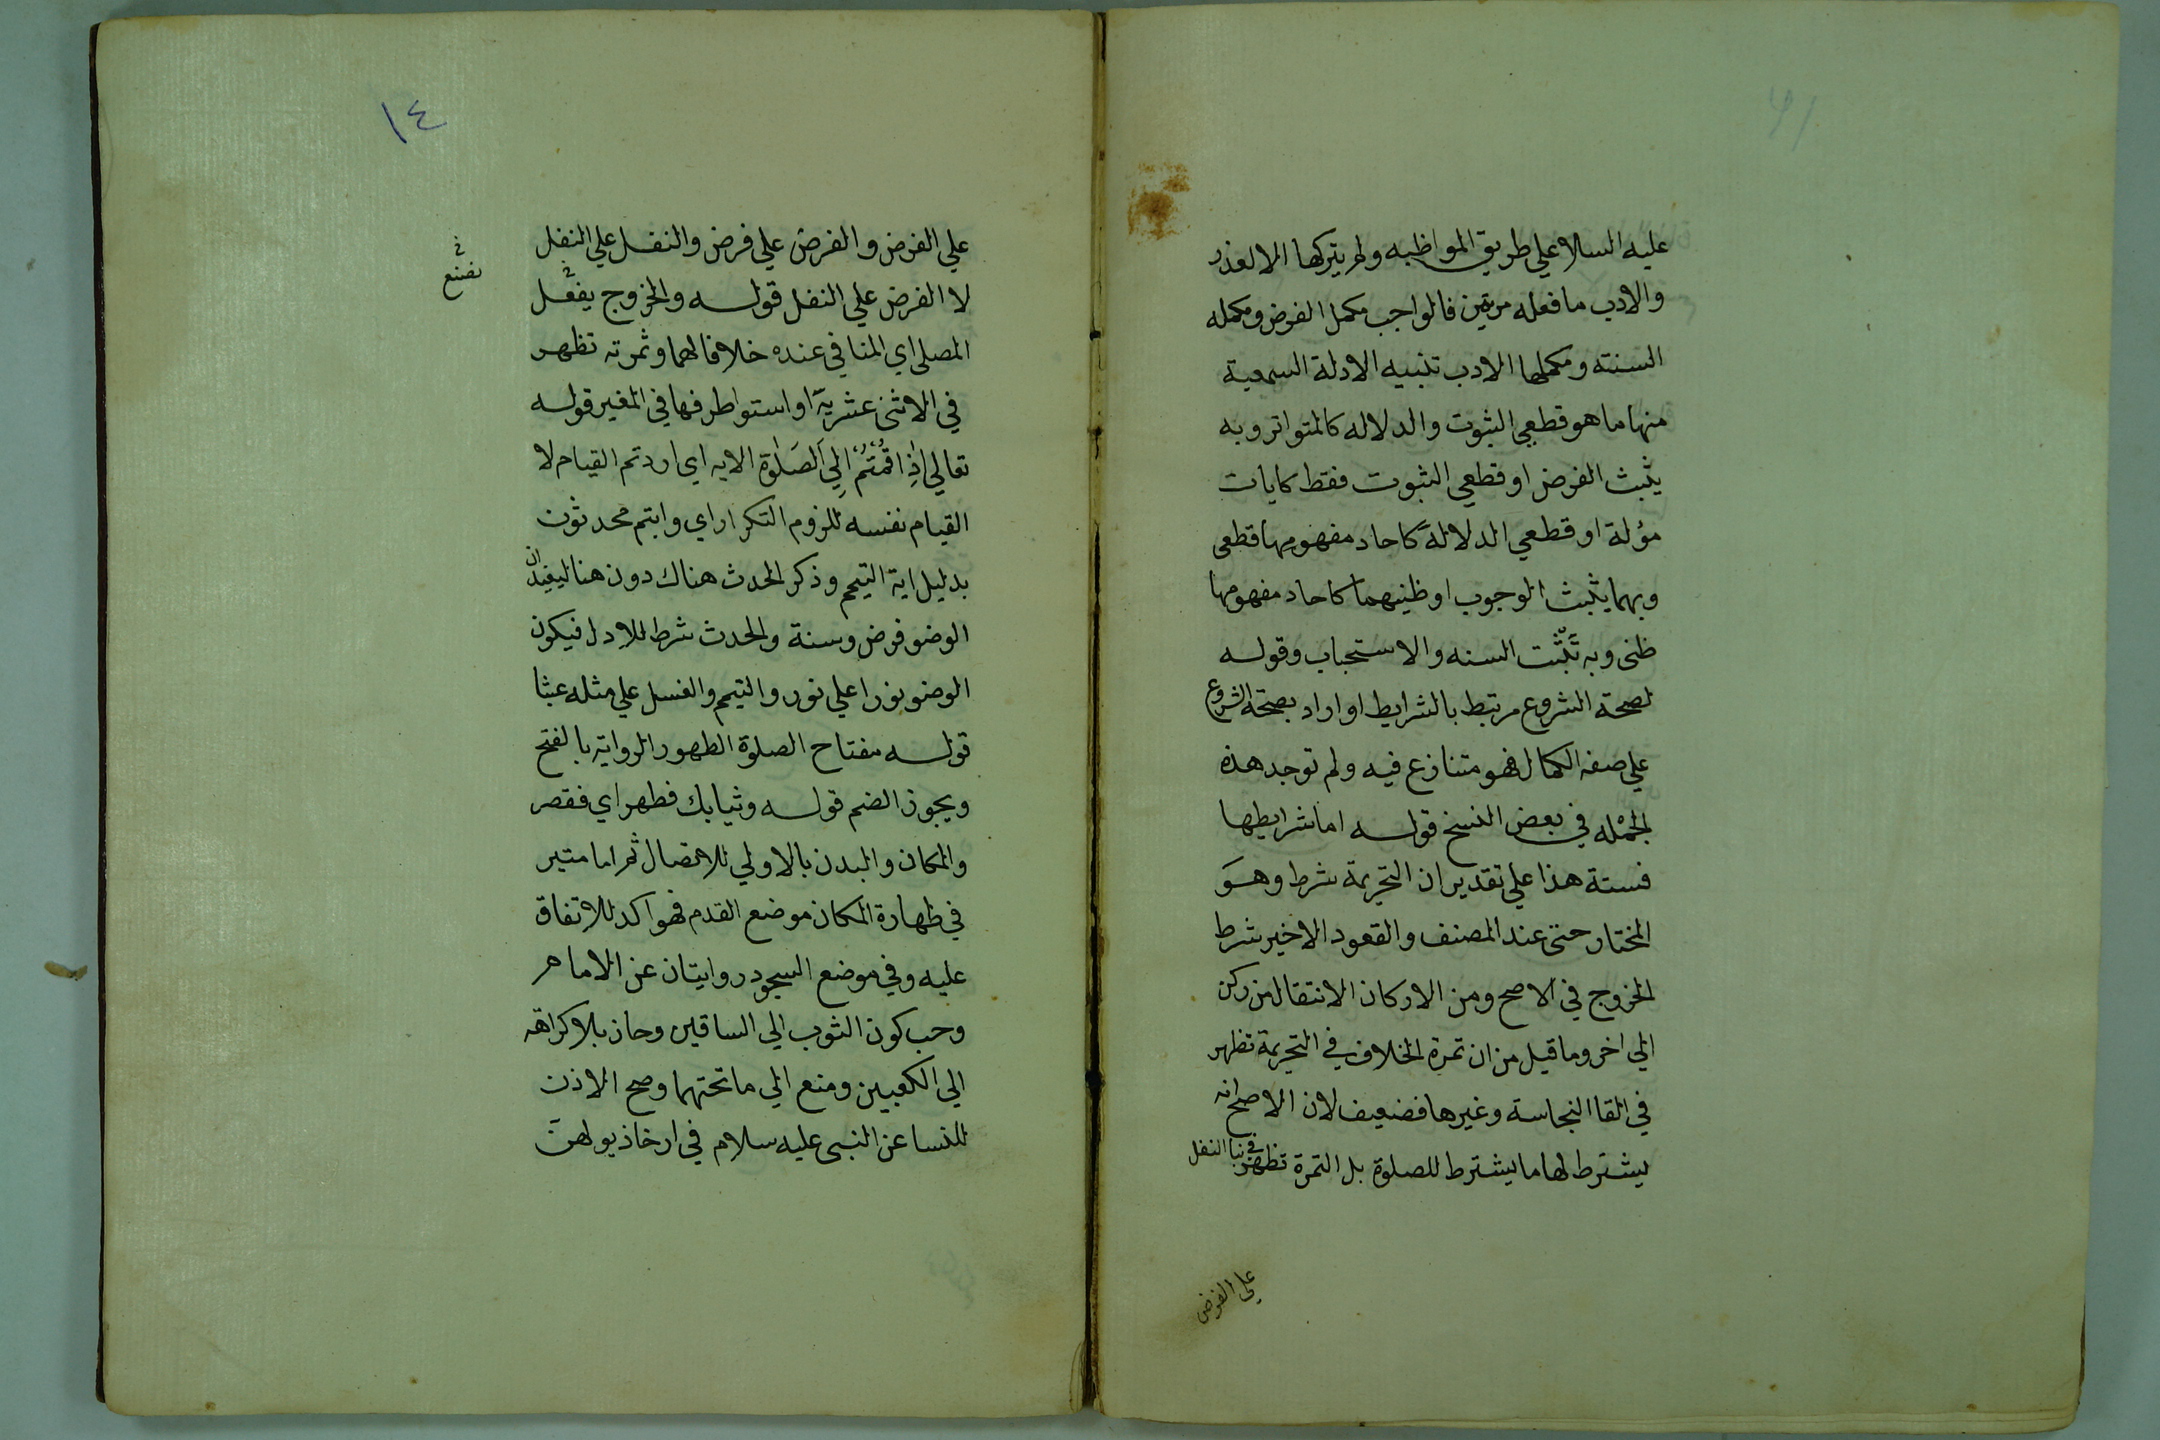 عليه السلا علي طريق المواظبه ولم يتركها الا لعذر
والادب ما فعله مرتين فالواجب مكمل الفرض ومكمله
السنته ومكملها الادب تنبيه الادلة السمعية
منها ما هو قطعي الثبوت والدلاله كالمتواتر وبه
يثبث الفرض او قطعي الثبوت فقط كايات
مؤلة او قطعي الدلالة كاحاد مفهومها قطعي
وبهما يثبث الوجوب او ظنيهما كاحاد مفهومها
ظني وبه تثبت السنه والاستحباب وقوله
لصحة الشروع مرتبط بالشرايط او اراد بصحة الشروع
علي صفه الكمال فهو متنازع فيه ولم توجد هذه
الجمله في بعض النسخ قوله اما شرايطها
فستة هذا علي تقدير ان التحريمة شرط وهو
المختار حتي عند المصنف والقعود الاخير شرط
الخروج في الاصح ومن الاركان الانتقال من ركن
الي اخر وما قيل من ان ثمرة الخلاف في التحريمة تظهر
في القا النجاسة وغيرها فضعيف لان الاصح انه
يشترط لها ما يشترط للصلوة بل الثمرة تظهر في بنا النفل
علي الفرض
١٤
علي الفرض والفرض علي فرض والنفل علي النفل
لا الفرض علي النفل قوله والخروج بفعل
بصنع
المصلي اي المنافي عنده خلافا لهما وثمرته تظهر
في الاثني عشرية او استواطرفها في المغير قوله
تعالي اذا قمتم الي الصلوة الايه اي اردتم القيام لا
القيام نفسه للزوم التكرار اي وانتم محدثون
بدليل اية التيمم وذكر الحدث هناك دون هنا ليفيد ان
الوضو فرض وسنة والحدث شرط للاول فيكون
الوضو نورا علي نور والتيمم والغسل علي مثله عبثا
قوله مفتاح الصلوة الطهور الرواية بالفتح
ويجوز الضم قوله وثيابك فطهر اي فقصر
والمكان والبدن بالاولي للاتصال ثم اما متير
في طهارة المكان موضع القدم فهو اكد للاتفاق
عليه وفي موضع السجود روايتان عن الامام
وحب كون الثوب الي الساقين وجاز بلا كراهة
الي الكعبين ومنع الي ما تحتهما وصح الاذن
للنسا عن النبي عليه سلام في ارخاذيولهن